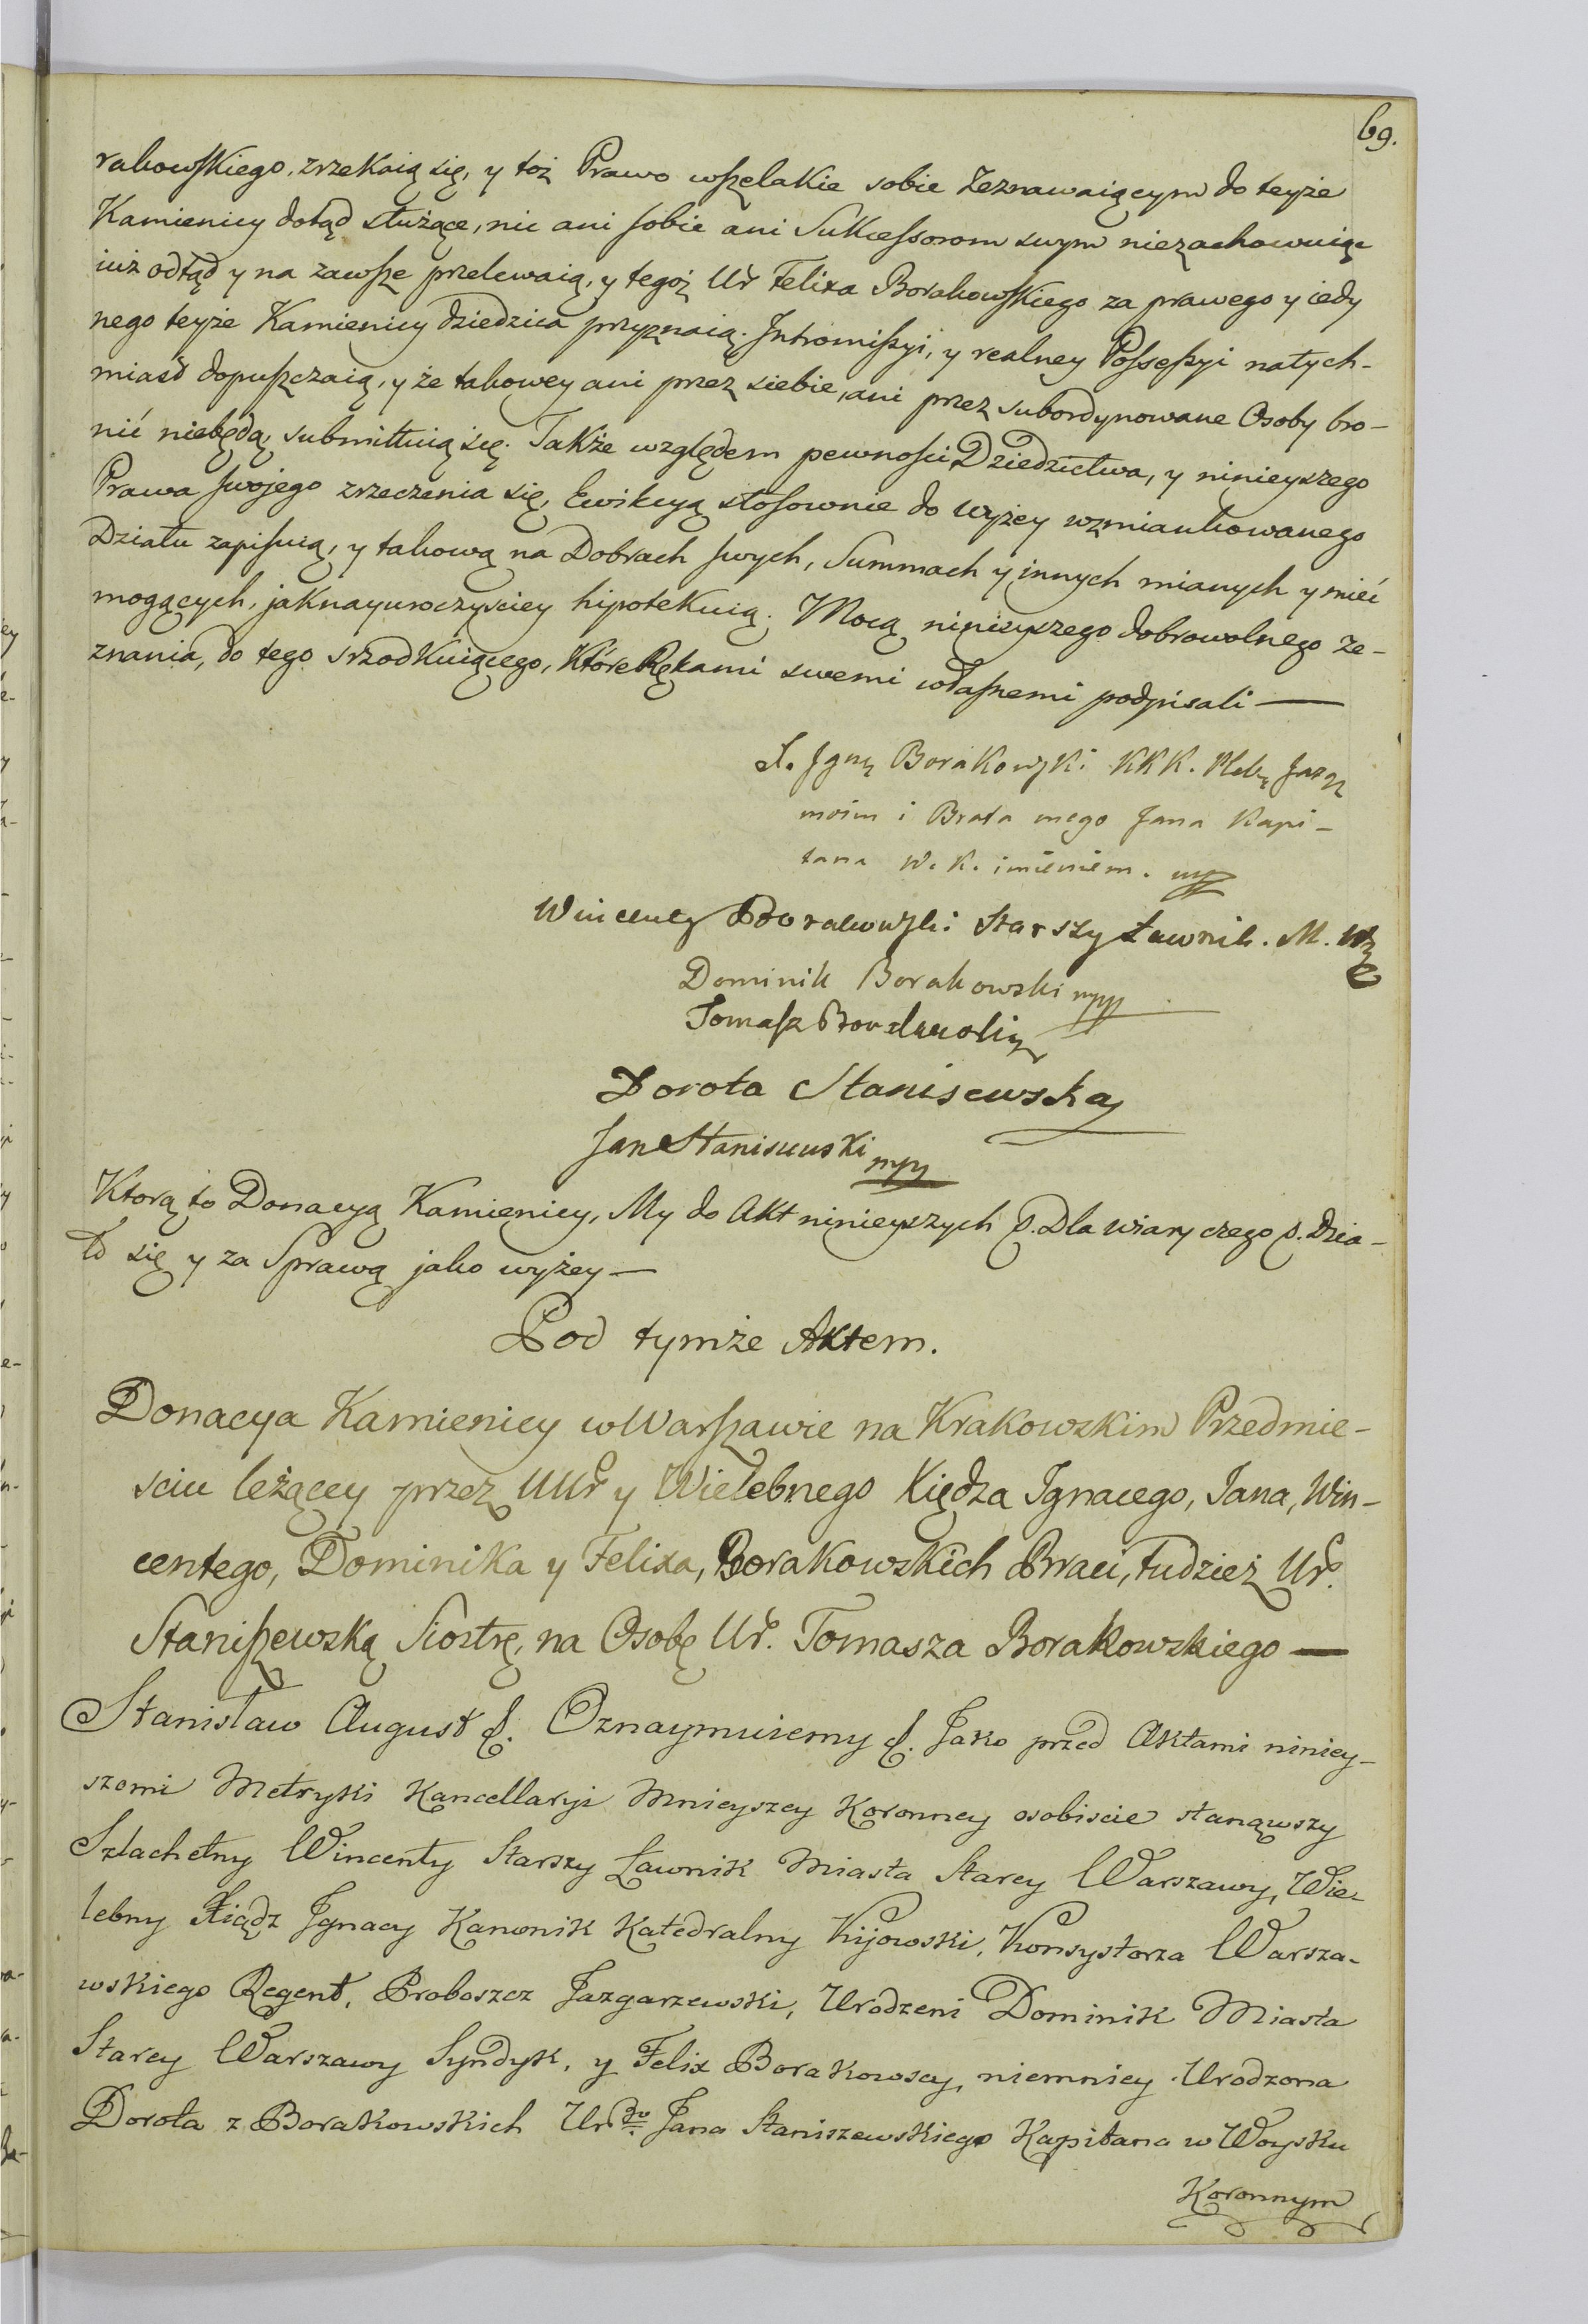 69.
rakowskiego, zrzekaią się, y toż Prawo wszelakie sobie Zeznawaiącym do teyże
Kamienicy dotąd służące, nic ani sobie ani Sukcessorom swym niezachowuiąc
iuż odtąd y na zawsze przelewaią, y tegoż Ur Felixa Borakowskiego za prawego y iedy
nego teyże Kamienicy dziedzica przyznaią. Intromissyi, y realney Possessyi natych-
miast dopuszczaią, y że takowey ani przez siebie, ani przez subordynowane Osoby bro-
nić niebędą, submittuią się. Także względem pewności Dziedzictwa, y ninieyszego
Prawa swojego zrzeczenia się, Ewikcyą stosownie do wyżey wzmiankowanego
Działu zapisuią, y takową na Dobrach swych, Summach y innych mianych y mieć
mogących, jaknayuroczyściey hipotekuią. Mocą ninieyszego dobrowolnego ze-
znania, do tego srzodkuiącego, które Rękami swemi własnemi podpisali —
X. Ignacy Borakowski KKK. Pleb
moim i Brata mego Jana Kapi-
tana W. K. imieniem. mp
Wincenty Borakowski Starszy Ławnik. M.
Dominik Borakowski mpp
Tomasz Borakowski
Dorota Staniszewska
Jan Staniszewski mpp
Ktorą to Donacyą Kamienicy, My do Akt ninieyszych &. Dla wiary czego &. Dzia-
ło się y za Sprawą jako wyżey —
Pod tymże Aktem.
Donacya Kamienicy w Warszawie na Krakowskim Przedmie-
sciu leżącey przez UUr y Wielebnego Xiędza Ignacego, Jana, Win-
centego, Dominika y Felixa, Borakowskich Braci, tudzież Ur.
Staniszewską Siostrę, na Osobę Ur. Tomasza Borakowskiego —
Stanisław August &. Oznaymuiemy &. Jako przed Aktami niniey-
szemi Metryki Kancellaryi Mnieyszey Koronney osobiscie stanąwszy
Szlachetny Wincenty Starszy Ławnik Miasta Starey Warszawy, Wie-
lebny Xiądz Ignacy Kanonik Katedralny Kijowski, Konsystorza Warsza-
wskiego Regent, Proboszcz Jazgarzewski, Urodzeni Dominik Miasta
Starey Warszawy Syndyk, y Felix Borakowscy, niemniey Urodzona
Dorota z Borakowskich Urdo Jana Staniszewskiego Kapitana w Woysku
Koronnym